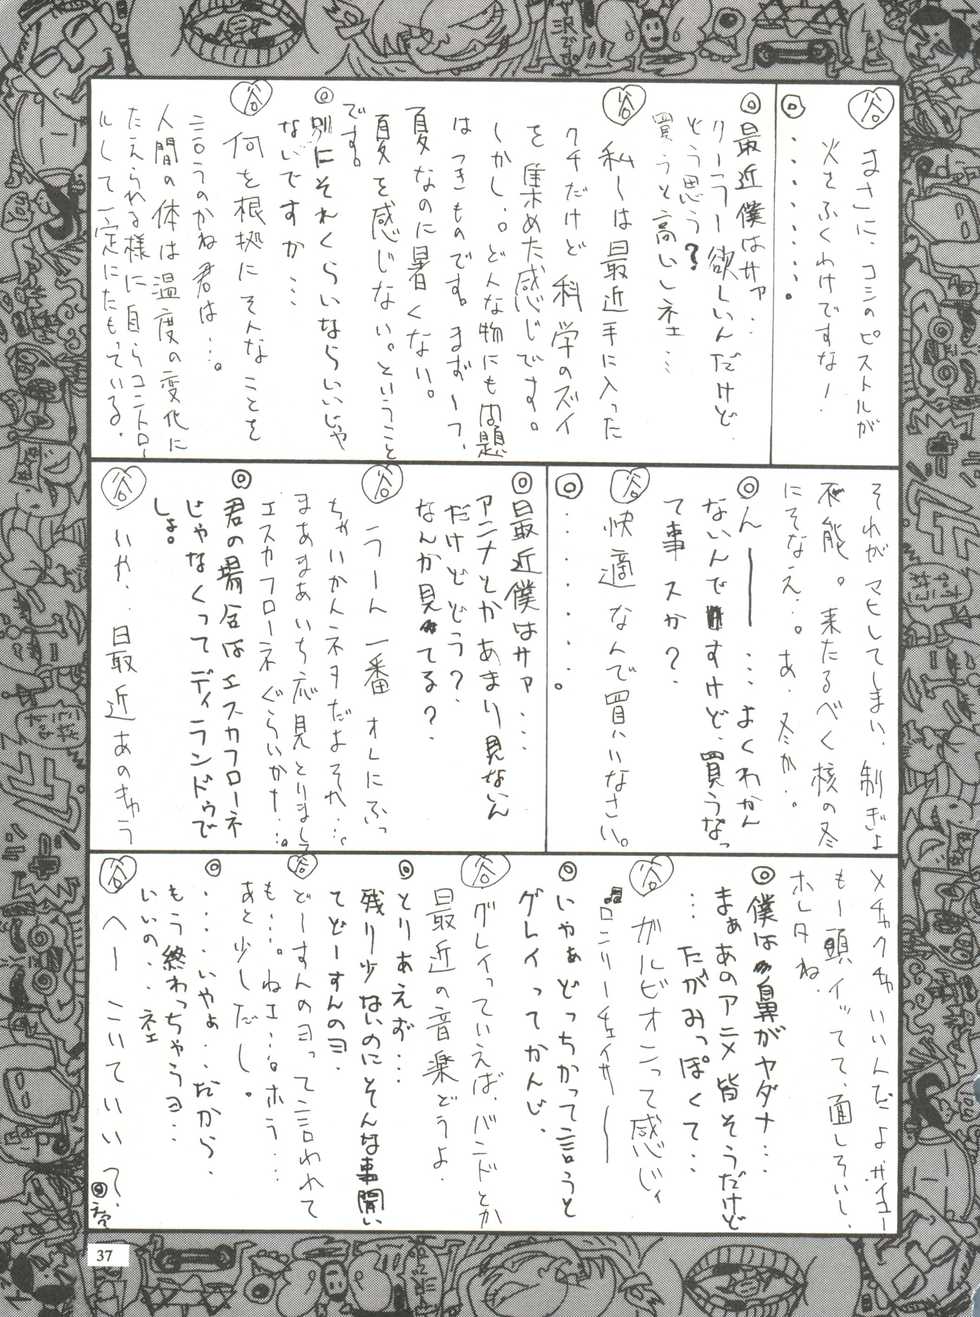 谷
まさに、コシのピストルが
火をふくわけですな!
◎
・・・・・・・・。
◎
最近僕はサァ…
クーラー欲しいんだけど
どう思う?
買うと高いしネェ…
谷
私しは最近手に入った
クチだけど科学のズイ
を集めた感じです。
しかし。どんな物にも問題
はつきものです。まず一つ、
夏なのに暑くない。
夏を感じない。ということ
です。
◎
別にそれくらいならいいじゃ
ないですか…
谷
何を根拠にそんなことを
言うのかね君は…。
人間の体は温度の変化に
たえられる様に自らコントロー
ルして一定にたもっている。
それがマヒしてしまい、制ぎょ
不能。来たるべく核の冬
にそなえ…。あ、冬か…。
◎
んーーー…よくわかん
ないんですけど、買うなっ
て事スか?
谷
快適なんで買いなさい。
◎
・・・・・・・。
◎
最近僕はサァ…
アニメとかあまり見ないん
だけどどう?
なんか見てる?
谷
うーん一番オレにふっ
ちゃいかんネタだよそれ…
まあまあいち応見とりましょう
エスカフローネぐらいか!…
◎
君の場合はエスカフローネ
じゃなくってディランドゥで
しょ。
谷
いや…最近あのきゅう
メチャクチャいいんだよ、サイコー
もー頭イッてて、面しろいし、
ホレタね。
◎
僕は鼻がヤダナ…
まぁあのアニメ皆そうだけど
…たがみっぽくて…
谷
ガルビオンって感じィ
♬ロンリーチェイサー
◎
いやぁどっちかって言うと
グレイってかんじ、
谷
グレイっていえば、バンドとか
最近の音楽どうよ
◎
とりあえず…
残り少ないのにそんな事聞い
てどーすんのヨ
谷
どーすんのヨって言われて
も…。ねェ…。ホラ…
あと少しだし。
◎
…いやぁ…だから、
もう終わっちゃうヨ…
いいの…ネェ
谷
へーこいていい?
37